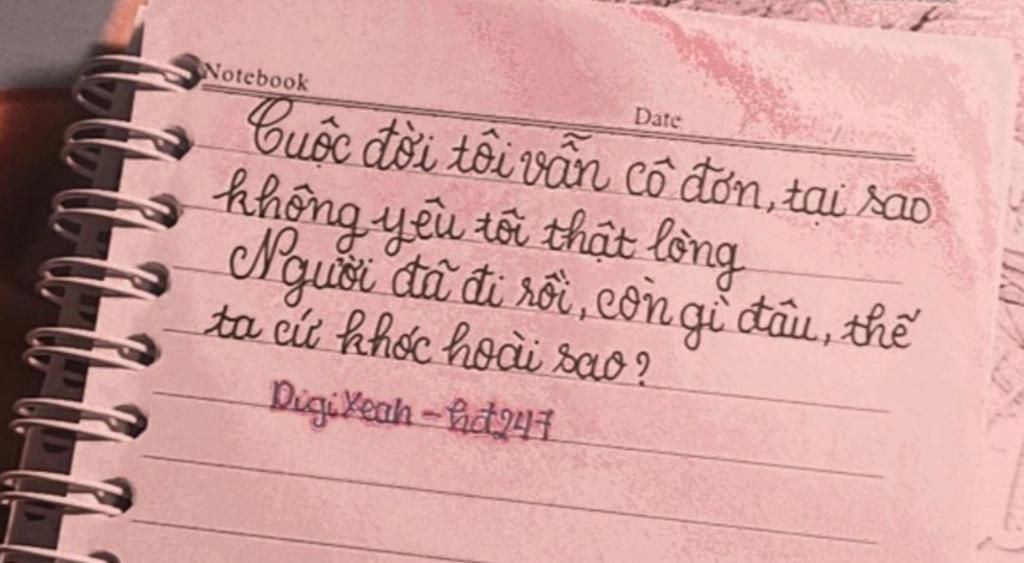 Notebook
Date
Cuộc đời tôi vẫn cô đơn, tại sao
không yêu tôi thật lòng
Người đã đi rồi, còn gì đâu, thế
ta cứ khóc hoài sao?
DigiYeah - hd247